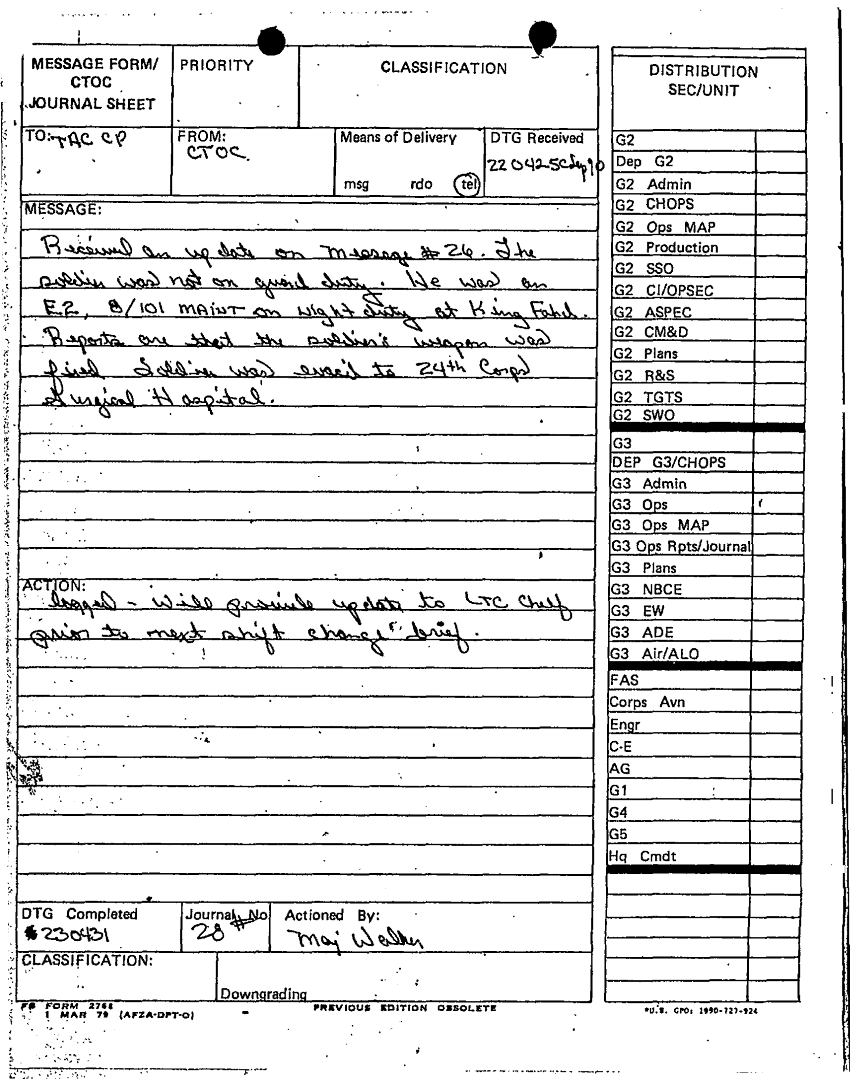 MESSAGE FORM/
CTOC
JOURNAL SHEET
PRIORITY
CLASSIFICATION
TO: TAC CP
FROM:
CTOC.
Means of Delivery
msg rdo tel
DTG Received
220425CSep90
MESSAGE:
Received an update on message # 26. The
soldier was not on guard duty. He was an
E2, 8/101 MAINT on night duty at King Fahd.
Reports are that the soldier's weapon was
fired. Soldier was evac'd to 24th Corps
Surgical Hospital.
ACTION:
logged - will provide update to LTC
prior to next shift change brief.
DTG Completed
230431
Journal No
28
Actioned By:
Maj Walker
CLASSIFICATION:
Downgrading
FB FORM 2768
1 MAR 79 (AFZA-DPT-O)
PREVIOUS EDITION OBSOLETE
DISTRIBUTION
SEC/UNIT
G2
Dep G2
G2 Admin
G2 CHOPS
G2 Ops MAP
G2 Production
G2 SSO
G2 CI/OPSEC
G2 ASPEC
G2 CM&D
G2 Plans
G2 R&S
G2 TGTS
G2 SWO
G3
DEP G3/CHOPS
G3 Admin
G3 Ops
G3 Ops MAP
G3 Ops Rpts/Journal
G3 Plans
G3 NBCE
G3 EW
G3 ADE
G3 Air/ALO
FAS
Corps Avn
Engr
C-E
AG
G1
G4
G5
Hq Cmdt
*U.S. GPO: 1990-727-924